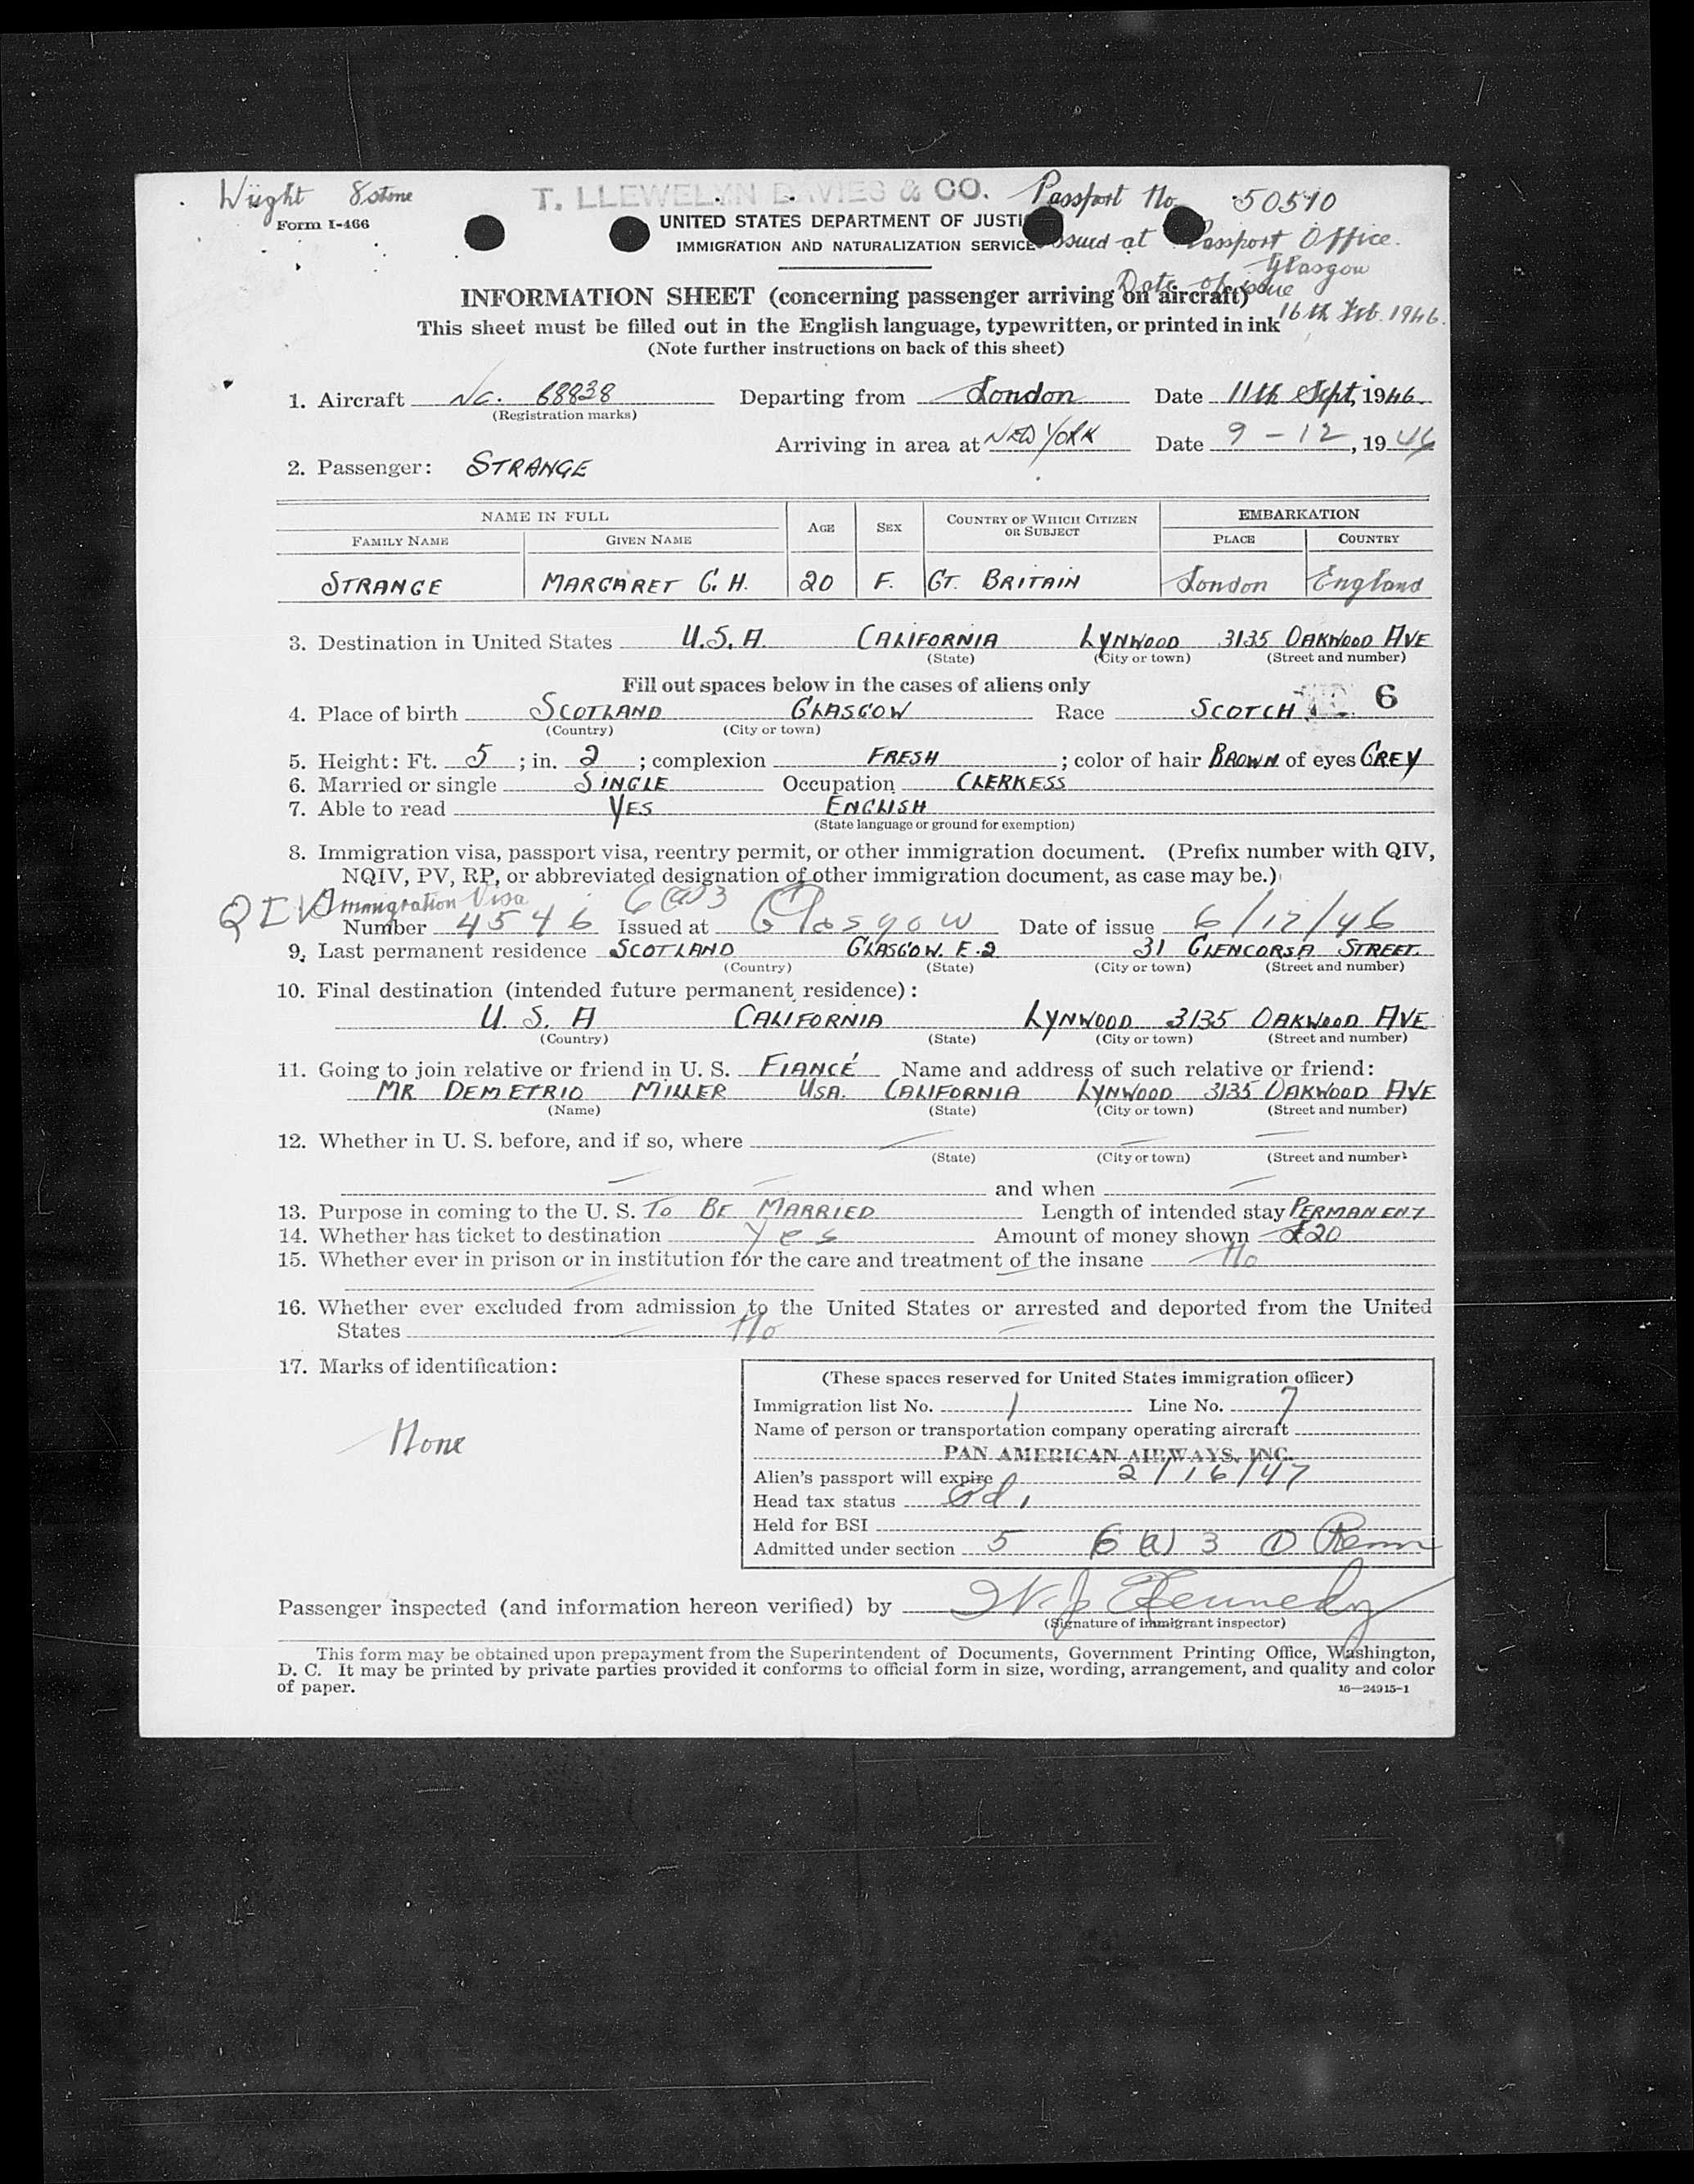 Wieght 8 stone T. LLEWELYN DAVIES & CO. Passport No 50510
Form I-466 UNITED STATES DEPARTMENT OF JUSTI
IMMIGRATION AND NATURALIZATION SERVICE Issued at Passport Office.
Glasgow
Date of issue
INFORMATION SHEET (concerning passenger arriving on aircraft)
16th Feb. 1946.
This sheet must be filled out in the English language, typewritten, or printed in ink
(Note further instructions on back of this sheet)
1. Aircraft NC. 68838 Departing from London Date 11th Sept, 1946.
(Registration marks)
Arriving in area at NEW YORK Date 9 - 12, 1946
2. Passenger: STRANGE
NAME IN FULL AGE SEX COUNTRY OF WHICH CITIZEN OR SUBJECT EMBARKATION
FAMILY NAME GIVEN NAME PLACE COUNTRY
STRANGE MARGARET G. H. 20 F. GT. BRITAIN London England
3. Destination in United States U.S.A. CALIFORNIA LYNWOOD 3135 OAKWOOD AVE
(State) (City or town) (Street and number)
Fill out spaces below in the cases of aliens only
4. Place of birth SCOTLAND GLASGOW Race SCOTCH 6
(Country) (City or town)
5. Height: Ft. 5 ; in. 2 ; complexion FRESH ; color of hair BROWN of eyes GREY
6. Married or single SINGLE Occupation CLERKESS
7. Able to read YES ENGLISH
(State language or ground for exemption)
8. Immigration visa, passport visa, reentry permit, or other immigration document. (Prefix number with QIV,
NQIV, PV, RP, or abbreviated designation of other immigration document, as case may be.)
QIV Immigration Visa 6(a)3
Number 4546 Issued at Glasgow Date of issue 6/12/46
9. Last permanent residence SCOTLAND GLASGOW. E.2 31 GLENCORSA STREET.
(Country) (State) (City or town) (Street and number)
10. Final destination (intended future permanent residence):
U. S. A CALIFORNIA LYNWOOD 3135 OAKWOOD AVE
(Country) (State) (City or town) (Street and number)
11. Going to join relative or friend in U. S. FIANCÉ Name and address of such relative or friend:
MR DEMETRIO MILLER USA. CALIFORNIA LYNWOOD 3135 OAKWOOD AVE
(Name) (State) (City or town) (Street and number)
12. Whether in U. S. before, and if so, where — — —
(State) (City or town) (Street and number)
— — and when —
13. Purpose in coming to the U. S. TO BE MARRIED Length of intended stay PERMANENT
14. Whether has ticket to destination Yes Amount of money shown £20
15. Whether ever in prison or in institution for the care and treatment of the insane No
16. Whether ever excluded from admission to the United States or arrested and deported from the United
States No
17. Marks of identification:
None
(These spaces reserved for United States immigration officer)
Immigration list No. 1 Line No. 7
Name of person or transportation company operating aircraft
PAN AMERICAN AIRWAYS, INC.
Alien's passport will expire 2/16/47
Head tax status Pd.
Held for BSI
Admitted under section 5 6 (a) 3
Passenger inspected (and information hereon verified) by W. J. Kennedy
(Signature of immigrant inspector)
This form may be obtained upon prepayment from the Superintendent of Documents, Government Printing Office, Washington,
D. C. It may be printed by private parties provided it conforms to official form in size, wording, arrangement, and quality and color
of paper. 16—24915-1